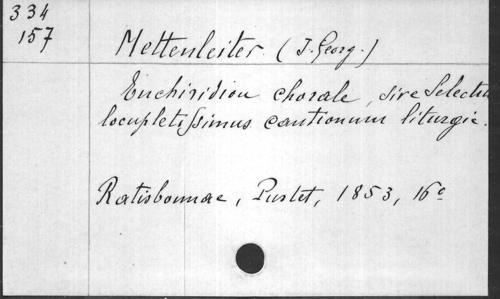 334
157
Mettenleiter. (J. Georg.)
Enchiridion chorale, sive Selectu
locupletissimus cantionum liturgic.
Ratisbonnae, Pustet, 1853, 16º